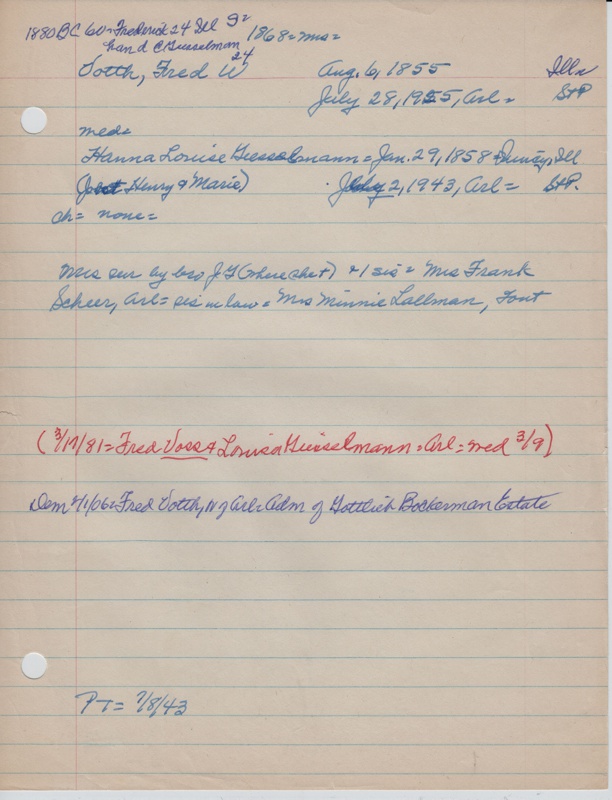 1880 BC 60= Frederick 24 Ill S=
hand C Giesselman 24 1868= Mrs=
Votth, Fred W Aug. 6, 1855 Ills
July 28, 1925, Arl= StP
med=
Hanna Louise Giesselmann = Jan. 29, 1858 = Quincy, Ill
Henry & Marie) July 2, 1943, Arl= StP.
ch= none=
Mrs sur by bro J G &1 sis= Mrs Frank
Scheer, Arl= sis in law= Mrs Minnie Lallman, Font
(3/17/81= Fred Voss & Louisa Giesselmann= Arl= med 3/9)
Dem 2/1/06= Fred Votth, N of Arl= Adm of Gottlieb Bockerman Estate
PT= 7/8/43